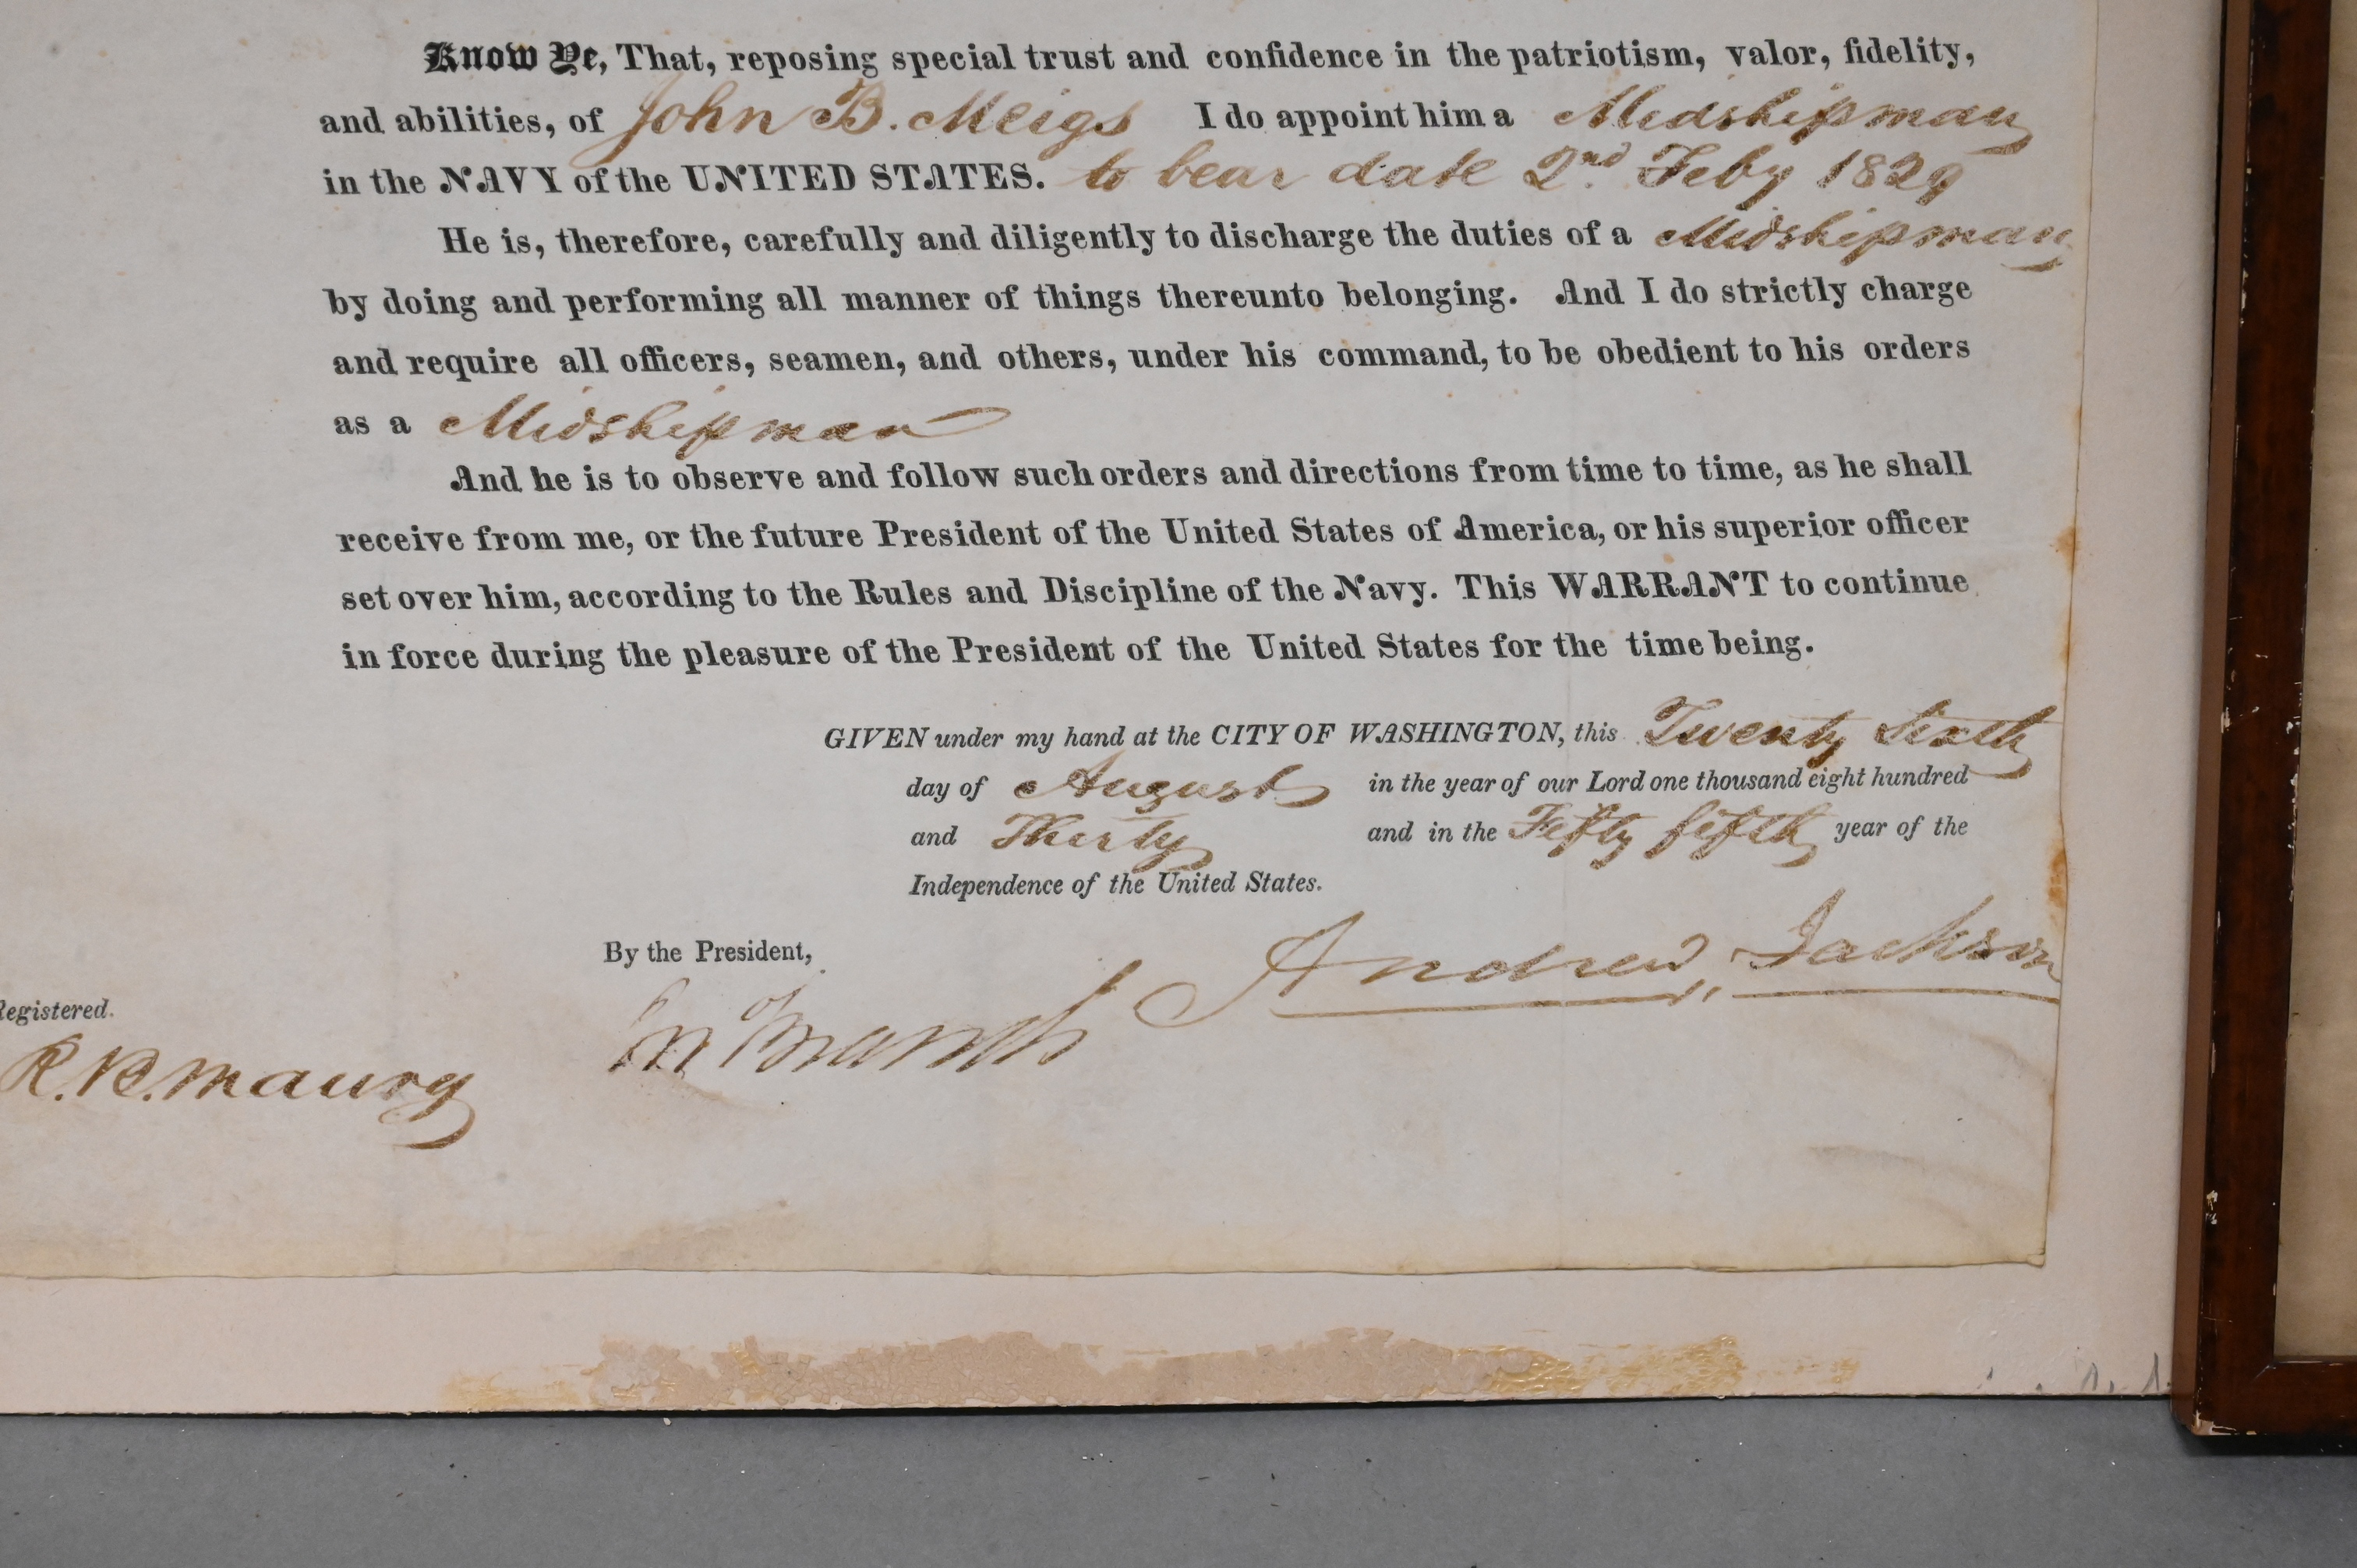 Know Ye, That, reposing special trust and confidence in the patriotism, valor, fidelity,
and abilities, of John B. Meigs I do appoint him a Midshipman
in the NAVY of the UNITED STATES. to bear date 2nd Feby 1829
He is, therefore, carefully and diligently to discharge the duties of a Midshipman
by doing and performing all manner of things thereunto belonging. And I do strictly charge
and require all officers, seamen, and others, under his command, to be obedient to his orders
as a Midshipman
And he is to observe and follow such orders and directions from time to time, as he shall
receive from me, or the future President of the United States of America, or his superior officer
set over him, according to the Rules and Discipline of the Navy. This WARRANT to continue
in force during the pleasure of the President of the United States for the time being.
GIVEN under my hand at the CITY OF WASHINGTON, this Twenty Sixth
day of August in the year of our Lord one thousand eight hundred
and Thirty and in the Fifty fifth year of the
Independence of the United States.
Andrew Jackson
By the President,
Jn Branch
Registered.
R. B. Maury